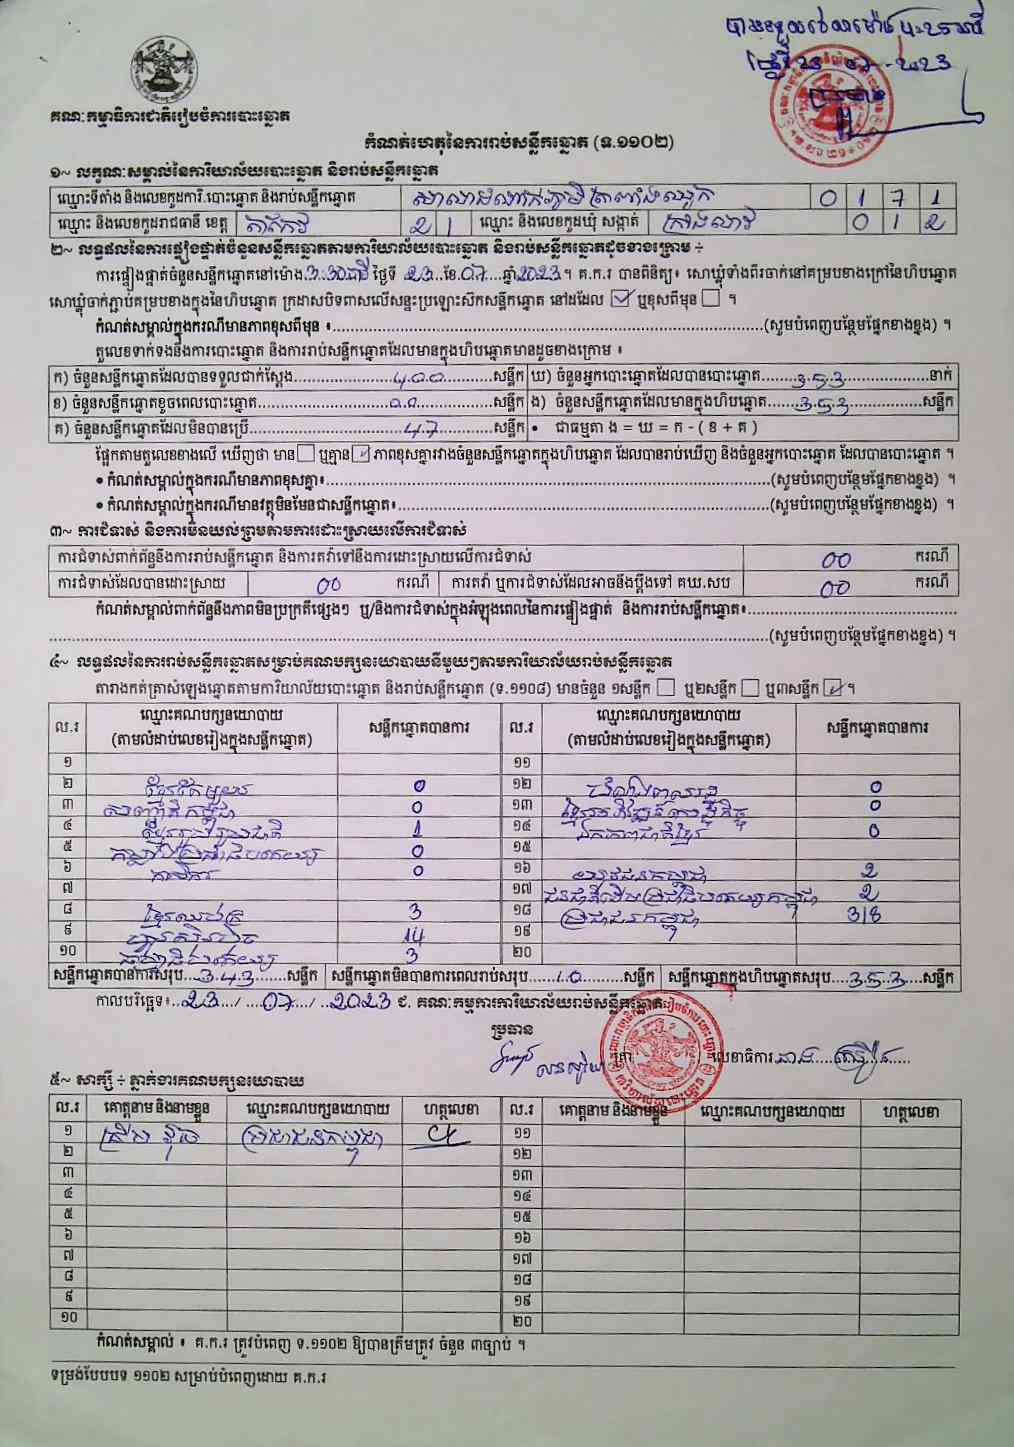 គណៈកម្មាធិការជាតិរៀបចំការបោះឆ្នោត
កំណត់ហេតុនៃការរាប់សន្លឹកឆ្នោត (ទ.១១០២)
១~ លក្ខណៈសម្គាល់នៃការិយាល័យបោះឆ្នោត និងរាប់សន្លឹកឆ្នោត
ឈ្មោះទីតាំង និងលេខកូដការិ.បោះឆ្នោត និងរាប់សន្លឹកឆ្នោត 0 1 7 1
ឈ្មោះ និងលេខកូដរាជធានី ខេត្ត តាកែវ 2 1 ឈ្មោះ និងលេខកូដឃុំ សង្កាត់ ក្រាំងលាវ 0 1 2
២~ លទ្ធផលនៃការផ្ទៀងផ្ទាត់ចំនួនសន្លឹកឆ្នោតតាមការិយាល័យបោះឆ្នោត និងរាប់សន្លឹកឆ្នោតដូចខាងក្រោម ÷
ការផ្ទៀងផ្ទាត់ចំនួនសន្លឹកឆ្នោតនៅម៉ោង 3:30នាទី ថ្ងៃទី 23 ខែ 07 ឆ្នាំ 2023 ។ គ.ក.រ បានពិនិត្យ៖ សោឃ្លុំទាំងពីរចាក់នៅគម្របខាងក្រៅនៃហិបឆ្នោត
សោឃ្លុំចាក់ភ្ជាប់គម្របខាងក្នុងនៃហិបឆ្នោត ក្រដាសបិទពាសលើសន្ទះប្រឡោះស៊កសន្លឹកឆ្នោត នៅដដែល ☑ ឬខុសពីមុន ☐ ។
កំណត់សម្គាល់ក្នុងករណីមានភាពខុសពីមុន ៖ (សូមបំពេញបន្ថែមផ្នែកខាងខ្នង) ។
តួលេខទាក់ទងនឹងការបោះឆ្នោត និងការរាប់សន្លឹកឆ្នោតដែលមានក្នុងហិបឆ្នោតមានដូចខាងក្រោម ៖
ក) ចំនួនសន្លឹកឆ្នោតដែលបានទទួលជាក់ស្តែង 400 សន្លឹក ឃ) ចំនួនអ្នកបោះឆ្នោតដែលបានបោះឆ្នោត 353 នាក់
ខ) ចំនួនសន្លឹកឆ្នោតខូចពេលបោះឆ្នោត 00 សន្លឹក ង) ចំនួនសន្លឹកឆ្នោតដែលមានក្នុងហិបឆ្នោត 353 សន្លឹក
គ) ចំនួនសន្លឹកឆ្នោតដែលមិនបានប្រើ 47 សន្លឹក • ជាធម្មតា ង = ឃ = ក - ( ខ + គ )
ផ្អែកតាមតួលេខខាងលើ ឃើញថា មាន ☐ ឬគ្មាន ☑ ភាពខុសគ្នារវាងចំនួនសន្លឹកឆ្នោតក្នុងហិបឆ្នោត ដែលបានរាប់ឃើញ និងចំនួនអ្នកបោះឆ្នោត ដែលបានបោះឆ្នោត ។
• កំណត់សម្គាល់ក្នុងករណីមានភាពខុសគ្នា៖ (សូមបំពេញបន្ថែមផ្នែកខាងខ្នង) ។
• កំណត់សម្គាល់ក្នុងករណីមានវត្ថុមិនមែនជាសន្លឹកឆ្នោត៖ (សូមបំពេញបន្ថែមផ្នែកខាងខ្នង) ។
៣~ ការជំទាស់ និងការមិនយល់ព្រមតាមការដោះស្រាយលើការជំទាស់
ការជំទាស់ពាក់ព័ន្ធនឹងការរាប់សន្លឹកឆ្នោត និងការតវ៉ាទៅនឹងការដោះស្រាយលើការជំទាស់ 00 ករណី
ការជំទាស់ដែលបានដោះស្រាយ 00 ករណី ការតវ៉ា ឬការជំទាស់ដែលអាចនឹងប្តឹងទៅ គឃ.សប 00 ករណី
កំណត់សម្គាល់ពាក់ព័ន្ធនឹងភាពមិនប្រក្រតីផ្សេងៗ ឬ/និងការជំទាស់ក្នុងអំឡុងពេលនៃការផ្ទៀងផ្ទាត់ និងការរាប់សន្លឹកឆ្នោត៖
(សូមបំពេញបន្ថែមផ្នែកខាងខ្នង) ។
៤~ លទ្ធផលនៃការរាប់សន្លឹកឆ្នោតសម្រាប់គណបក្សនយោបាយនីមួយៗតាមការិយាល័យរាប់សន្លឹកឆ្នោត
តារាងកត់ត្រាសំឡេងឆ្នោតតាមការិយាល័យបោះឆ្នោត និងរាប់សន្លឹកឆ្នោត (ទ.១១០៨) មានចំនួន ១សន្លឹក ☐ ឬ២សន្លឹក ☐ ឬ៣សន្លឹក ☑ ។
ល.រ ឈ្មោះគណបក្សនយោបាយ (តាមលំដាប់លេខរៀងក្នុងសន្លឹកឆ្នោត) សន្លឹកឆ្នោតបានការ ល.រ ឈ្មោះគណបក្សនយោបាយ (តាមលំដាប់លេខរៀងក្នុងសន្លឹកឆ្នោត) សន្លឹកឆ្នោតបានការ
១ ១១
២ ខ្មែរតែមួយ 0 ១២ 0
៣ សញ្ជាតិកម្ពុជា 0 ១៣ ខ្មែរអភិវឌ្ឍន៍សេដ្ឋកិច្ច 0
៤ ខ្មែររួបរួមជាតិ 1 ១៤ ឯកភាពជាតិខ្មែរ 0
៥ 0 ១៥
៦ កសិករ 0 ១៦ យុវជនកម្ពុជា 2
៧ ១៧ ជនជាតិដើមប្រជាធិបតេយ្យកម្ពុជា 2
៨ ខ្មែរឈប់ក្រ 3 ១៨ ប្រជាជនកម្ពុជា 318
៩ ហ៊្វុនស៊ិនប៉ិច 14 ១៩
១០ 3 ២០
សន្លឹកឆ្នោតបានការសរុប 343 សន្លឹក សន្លឹកឆ្នោតមិនបានការពេលរាប់សរុប 10 សន្លឹក សន្លឹកឆ្នោតក្នុងហិបឆ្នោតសរុប 353 សន្លឹក
កាលបរិច្ឆេទ៖ 23 / 07 / 2023 ជ. គណៈកម្មការការិយាល័យរាប់សន្លឹកឆ្នោត
ប្រធាន
លេខាធិការ
៥~ សាក្សី ÷ ភ្នាក់ងារគណបក្សនយោបាយ
ល.រ គោត្តនាម និងនាមខ្លួន ឈ្មោះគណបក្សនយោបាយ ហត្ថលេខា ល.រ គោត្តនាម និងនាមខ្លួន ឈ្មោះគណបក្សនយោបាយ ហត្ថលេខា
១ ប្រជាជនកម្ពុជា ១១
២ ១២
៣ ១៣
៤ ១៤
៥ ១៥
៦ ១៦
៧ ១៧
៨ ១៨
៩ ១៩
១០ ២០
កំណត់សម្គាល់ ៖ គ.ក.រ ត្រូវបំពេញ ទ.១១០២ ឱ្យបានត្រឹមត្រូវ ចំនួន ៣ច្បាប់ ។
ទម្រង់បែបបទ ១១០២ សម្រាប់បំពេញដោយ គ.ក.រ